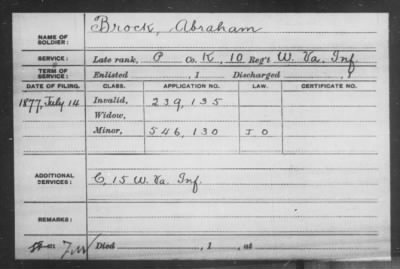 NAME OF SOLDIER: Brock, Abraham
SERVICE: Late rank, P Co. K, 10 Reg't W. Va. Inf.
TERM OF SERVICE: Enlisted , 1 Discharged , 1
DATE OF FILING. CLASS. APPLICATION NO. LAW. CERTIFICATE NO.
1877, July 14 Invalid, 239,135
Widow,
Minor, 546,130 J.O
ADDITIONAL SERVICES: C, 15 W. Va. Inf.
REMARKS:
Died , 1 , at